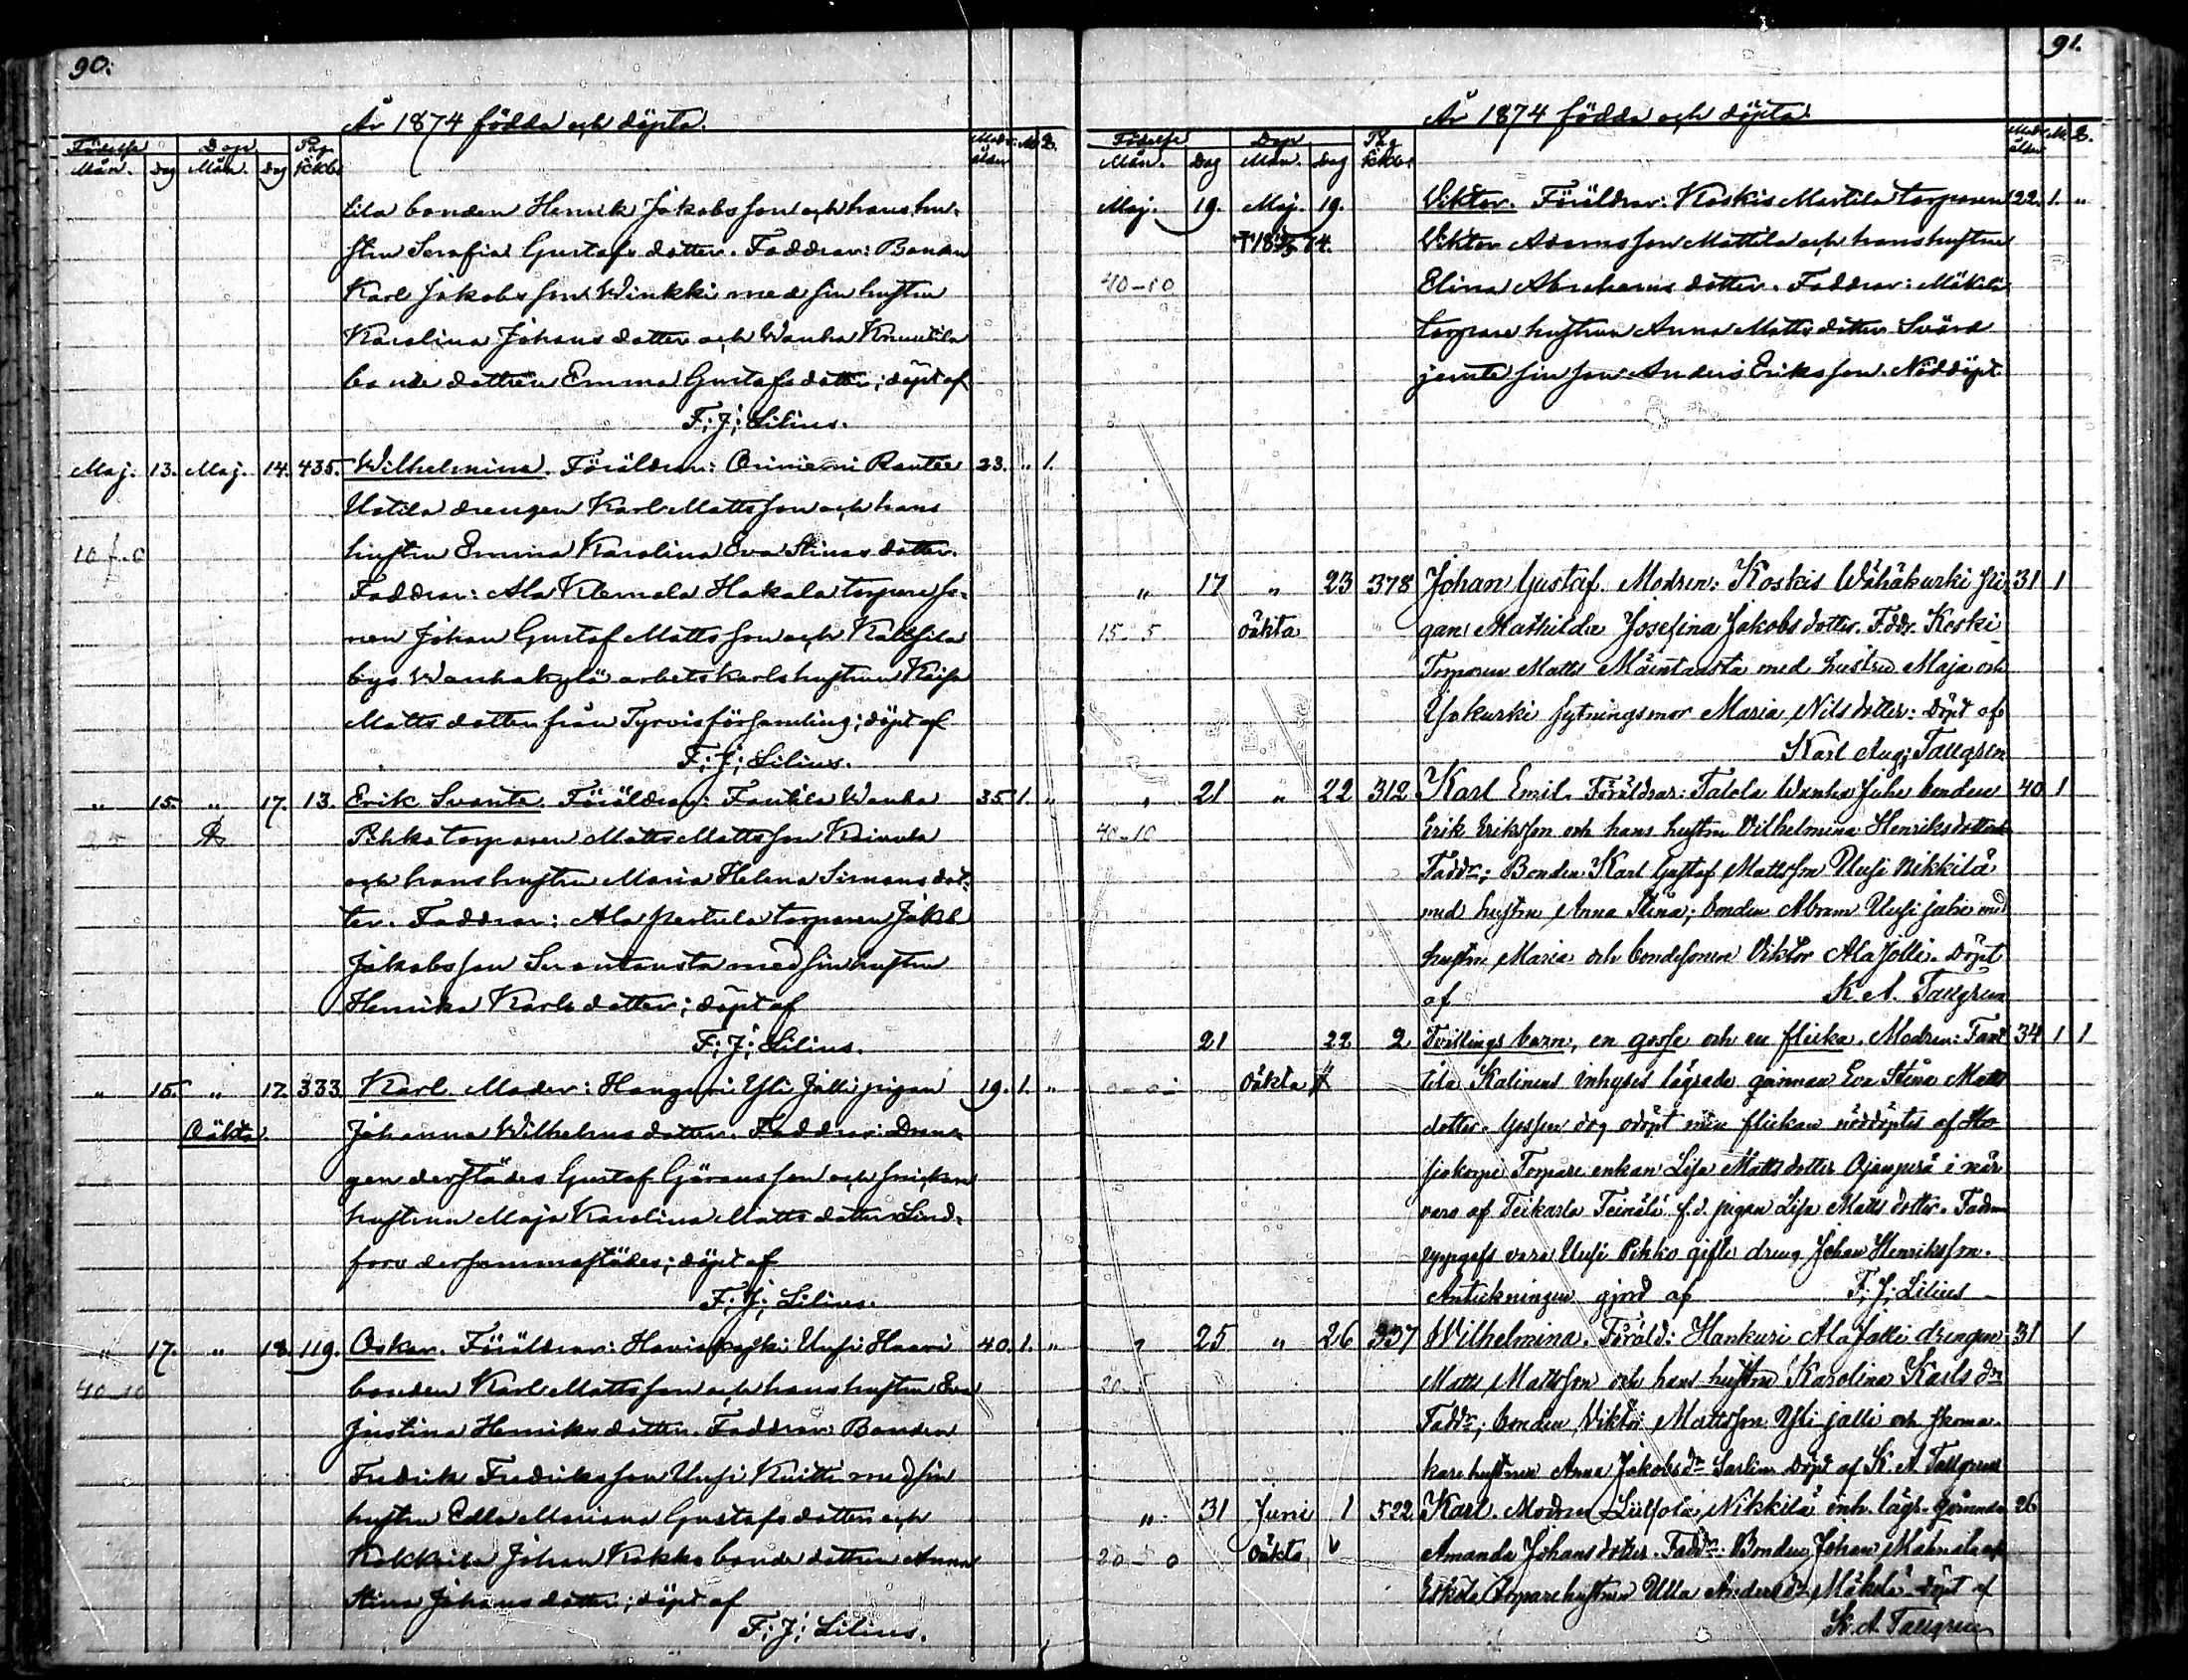 90.
År 1874 födda och döpta.
Födelse Dop Pag. Modr. M. Q.
Mån. Dag Mån. Dag i kkb. ålder
tila bonden Henrik Jakobsson och hans hu-
stru Serafia Gustafsdotter. Faddrar: Bonden
Karl Jakobsson Winkki med sin hustru
Karolina Johansdotter och Wanha Knuutila
bonde dottren Emma Gustafsdotter; döpt af
F; J; Lilius.
Maj. 13. Maj. 14. 435. Wilhelmina. Föräldrar: Oriniemi Rantee 23. " 1.
Uotila drengen Karl Mattsson och hans
10 hustru Emma Karolina Eva Stinas dotter.
Faddrar: Ala Klemola Hakala torpare so-
nen Johan Gustaf Mattsson och Kallsila
bys Wanhakylä arbetskarlshustrun Kaisa
Matts dotter från Tyrvis församling; döpt af
F; J; Lilius.
" 15. " 17. 13. Erik Svante. Föräldrar: Fantila Wanha 35. 1. "
Pehko torparen Matts Mattsson Koivula
och hans hustru Maria Helena Simonsdot-
ter. Faddrar: Ala Pertula torparen Jakob
Jakobsson Suontausta med sin hustru
Henrika Karlsdotter; döpt af
F; J; Lilius.
" 15. " 17. 333. Karl. Moder: Hanguri Yli Jalli pigan 19. 1. "
Oäkta. Johanna Wilhelmsdotter. Faddrar: Dren-
gen derstädes Gustaf Göransson och snickare
hustrun Maja Karolina Mattsdotter Lind-
fors dersammastädes; döpt af
F; J; Lilius.
" 17. " 18. 119. Oskar. Föräldrar: Haviokoski Uusi Haavi 40. 1. "
40-10 bonden Karl Mattsson och hans hustru Eva
Justina Henriksdotter. Faddrar: Bonden
Fredrik Fredriksson Uusi Knitti med sin
hustru Edla Mariana Gustafsdotter och
Kokkoila Johan Kokko bonde dottren Anna
Stina Johansdotter; döpt af
F; J; Lilius.
91.
År 1874 födda och döpta.
Födelse Dop Pag. Modr. M. Q.
Mån. Dag Mån. Dag i kkb. ålder
Maj. 19. Maj. 19. Viktor. Föräldrar: Koskis Martila torparen 22. 1. "
Viktor Adamsson Mattila och hans hustru
40-10 Elina Abrahamsdotter. Faddrar: Mäkilä
torpare hustrun Anna Mattsdotter Svärd
jemte sin son Anders Eriksson. Nöddöpt.
" 17 " 23 378 Johan Gustaf. Modren: Koskis Wähäkurki pi- 31 1
15-5 oäkta gan Mathilda Josefina Jakobsdotter. Faddr. Koski
Torparen Matts Mäentausta med hustru Maja och
Isokurki sytningsmor Maria Nilsdotter: Döpt af
Karl Aug; Tallgren
" 21 " 22 312 Karl Emil. Föräldrar: Talola Wanha Juho bonden 40 1
40-10 Erik Eriksson och hans hustru Vilhelmina Henriksdotter
Faddr; Bonden Karl Gustaf Mattsson Uusi Nikkilä
med hustru Anna Stina; bonden Abram Uusi med
hustru Maria och bondesonen Viktor Ala Jolli. Döpt
af K. A. Tallgren
21 22 2 Tvillings barn, en gosse och en flicka. Modren: Fant 34 1 1
0-0- oäkta tila Kalinens inhyses lägrade qvinnan Eva Stina Matts
dotter. Gossen dog odöpt men flickan nöddöptes af
Torpare enkan Lisa Mattsdotter Ojanperä i när
varo af Teikarla Teinälä f.d. pigan Lisa Mattsdotter. Fadren
uppgafs vara Uusi Pihko gifte dreng Johan Henriksson.
Anteckningen gjord af F; J; Lilius
" 25 " 26 337 Wilhelmina. Föräld: Hankuri Ala Jalli drengen 31 1
Matts Mattsson och hans hustru Karolina Karlsdr
Faddr; bonden Viktor Mattsson Yli jalli och skoma-
kare hustrun Anna Jakobsdr Sarlin Döpt af K. A. Tallgren
" 31 Juni 1 522 Karl. Modren Liitsola Nikkilä inh. lägr. qvinnan 26
20-0 oäkta Amanda Johansdotter. Faddr: Bonden Johan af
Eskola torparehustrun Ulla Andersdr Mäkelä Döpt af
K. A. Tallgren